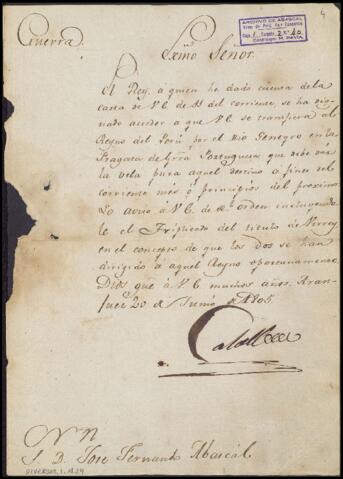 4
ARCHIVO DE ABASCAL
Guerra.
Exmô Señor.
El Rey, á quien he dado cuenta de la
carta de V.E. de 11 del corriente, se ha dig
nado acceder a que V.E. se transfiera al
Reyno del Perú por el Rio Geneyro en la
Fragata de Portuguesa que debe dár
la vela para aquel destino a fines del
corriente mes ó principios del proximo.
Lo aviso á V.E. de Rl orden incluyendo
le el Triplicado del titulo de Virrey
en el concepto de que los dos se han
dirigido á aquel Reyno oportunamente.
Dios gue á V.E. muchos años. Aran
juez 20 de Junio de 1805.
Caballero
S. D. Jose Fernando Abascál.
DIVERSOS, 1, A